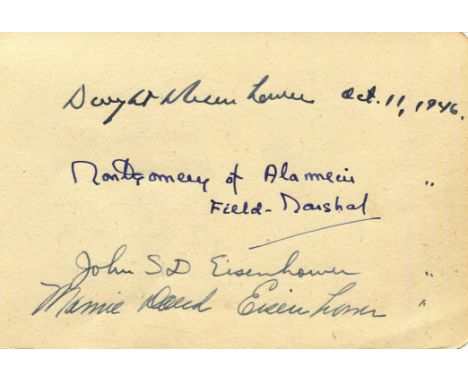 Dwight D Eisenhower Oct. 11, 1946.
Montgomery of Alamein "
Field-Marshal
John S D Eisenhower "
Mamie Doud Eisenhower "